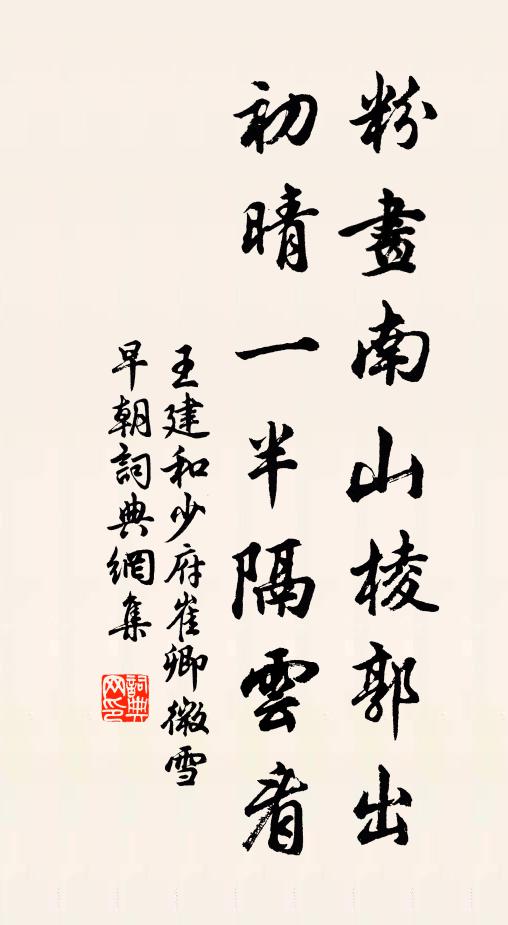 粉畫南山棱郭出
初晴一半隔雲看
王建和少府崔卿微雪
早朝詞典網集
詞典网印